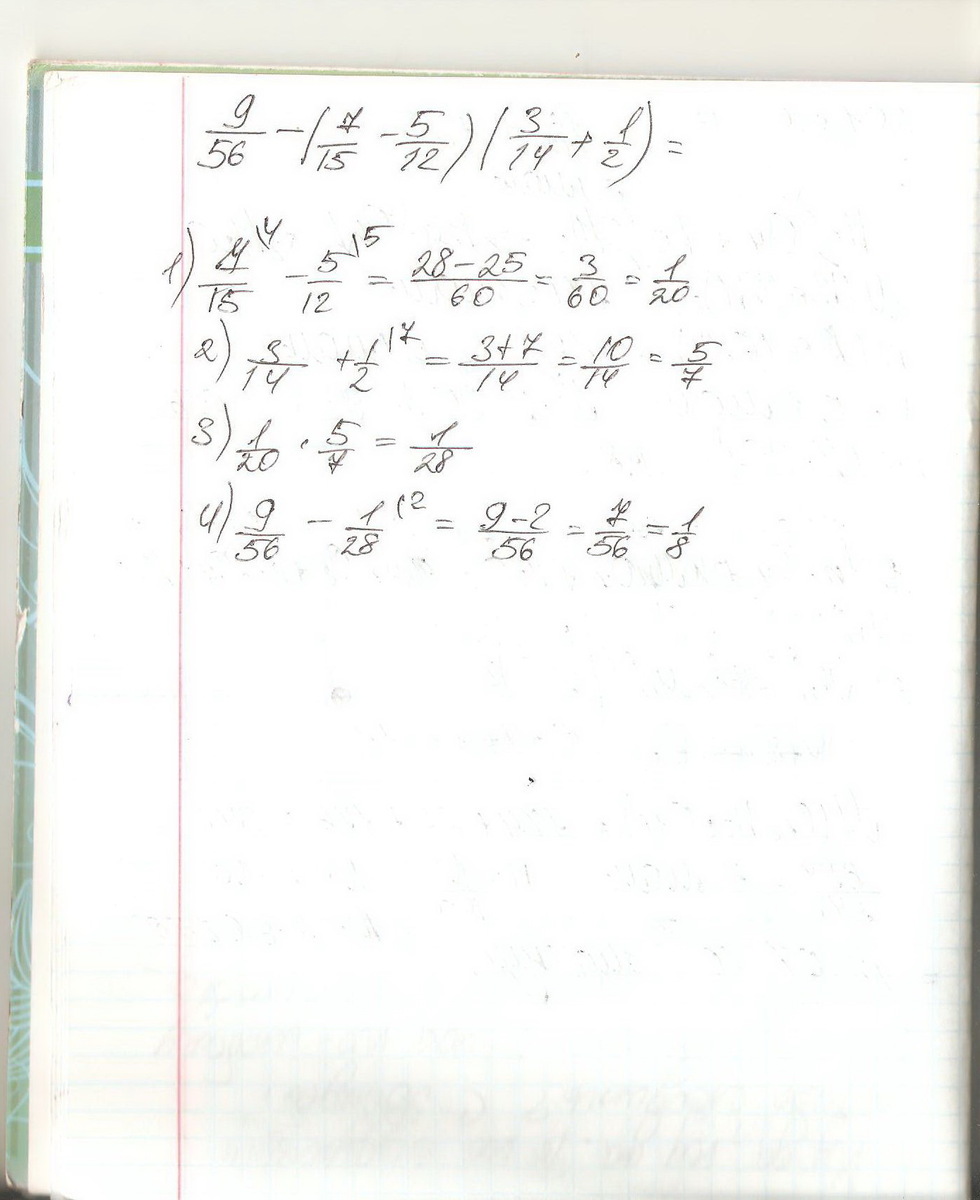 9/56 - (7/15 - 5/12) (3/14 + 1/2) =
1) 7/15 \4 - 5/12 \5 = 28-25/60 = 3/60 = 1/20
2) 3/14 + 1/2 \7 = 3+7/14 = 10/14 = 5/7
3) 1/20 · 5/7 = 1/28
4) 9/56 - 1/28 \2 = 9-2/56 = 7/56 = 1/8